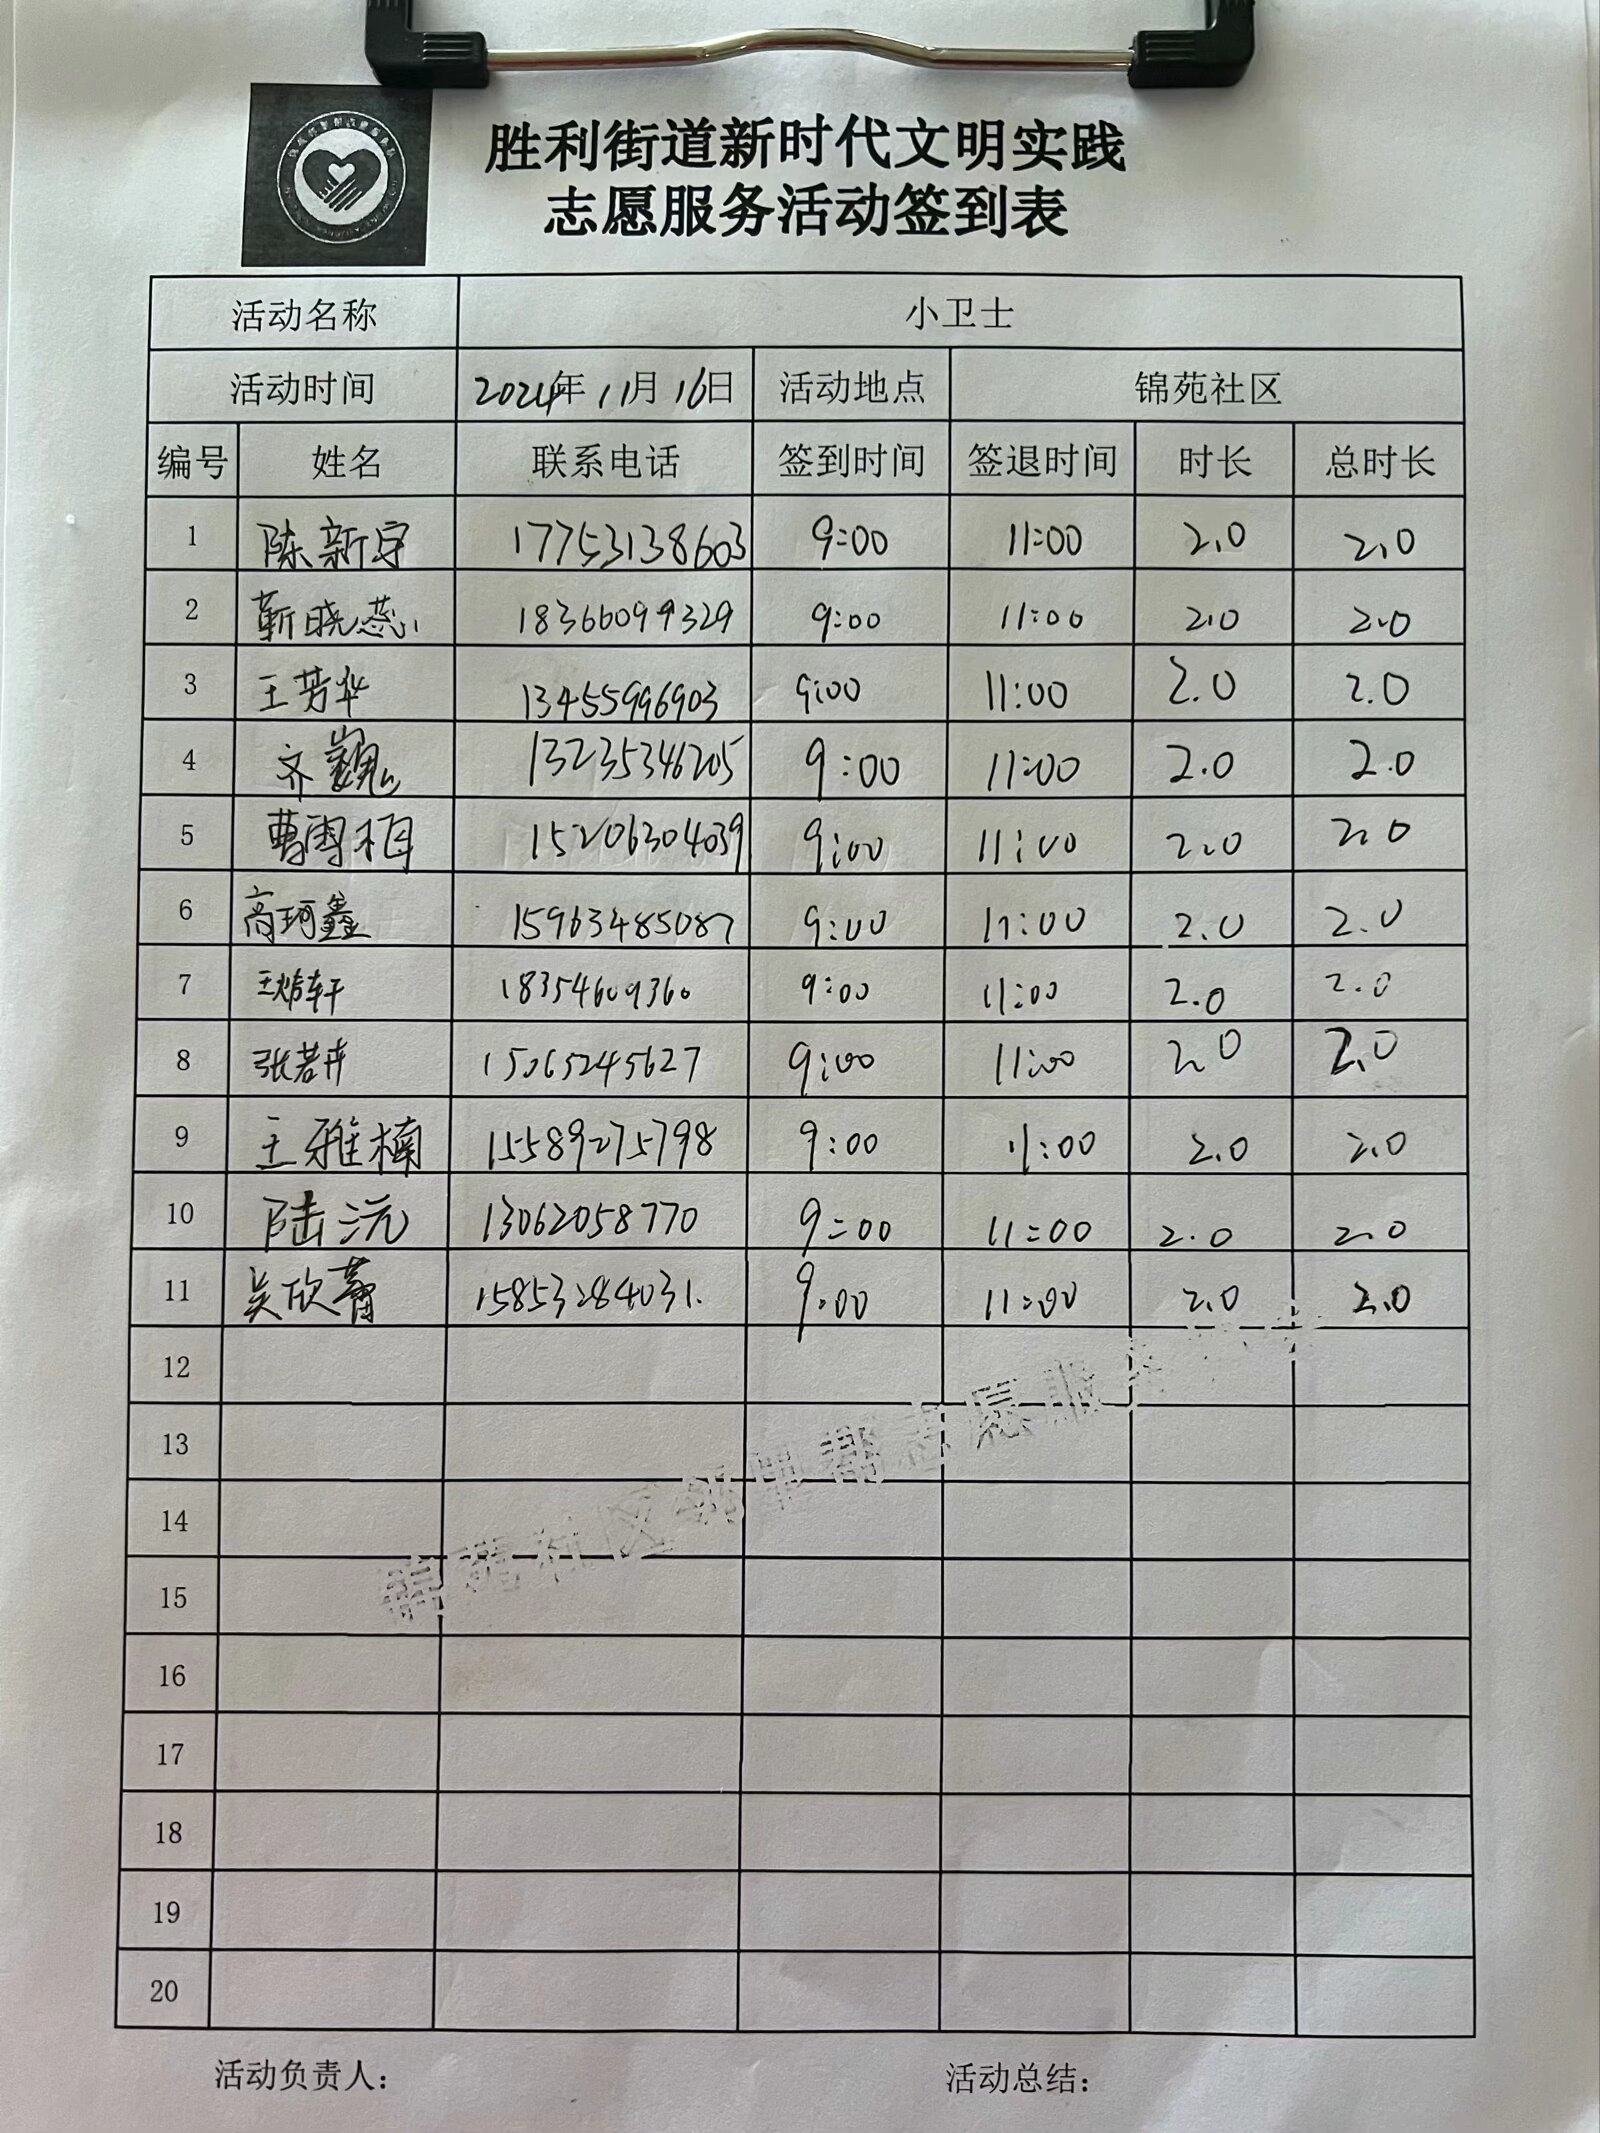 胜利街道新时代文明实践
志愿服务活动签到表
活动名称 小卫士
活动时间 2024年11月16日 活动地点 锦苑社区
编号 姓名 联系电话 签到时间 签退时间 时长 总时长
1 陈新宇 17753138603 9:00 11:00 2.0 2.0
2 靳晓蕊 18366099329 9:00 11:00 2.0 2.0
3 王芳华 13455996903 9:00 11:00 2.0 2.0
4 齐巍 13235346205 9:00 11:00 2.0 2.0
5 曹雪相 15206304039 9:00 11:00 2.0 2.0
6 高珂鑫 15963485087 9:00 11:00 2.0 2.0
7 18354609360 9:00 11:00 2.0 2.0
8 张若卉 15065245627 9:00 11:00 2.0 2.0
9 王雅楠 15589275798 9:00 11:00 2.0 2.0
10 陆沅 13062058770 9:00 11:00 2.0 2.0
11 吴欣蕾 15853284031. 9:00 11:00 2.0 2.0
12
13
14
15
16
17
18
19
20
活动负责人： 活动总结：